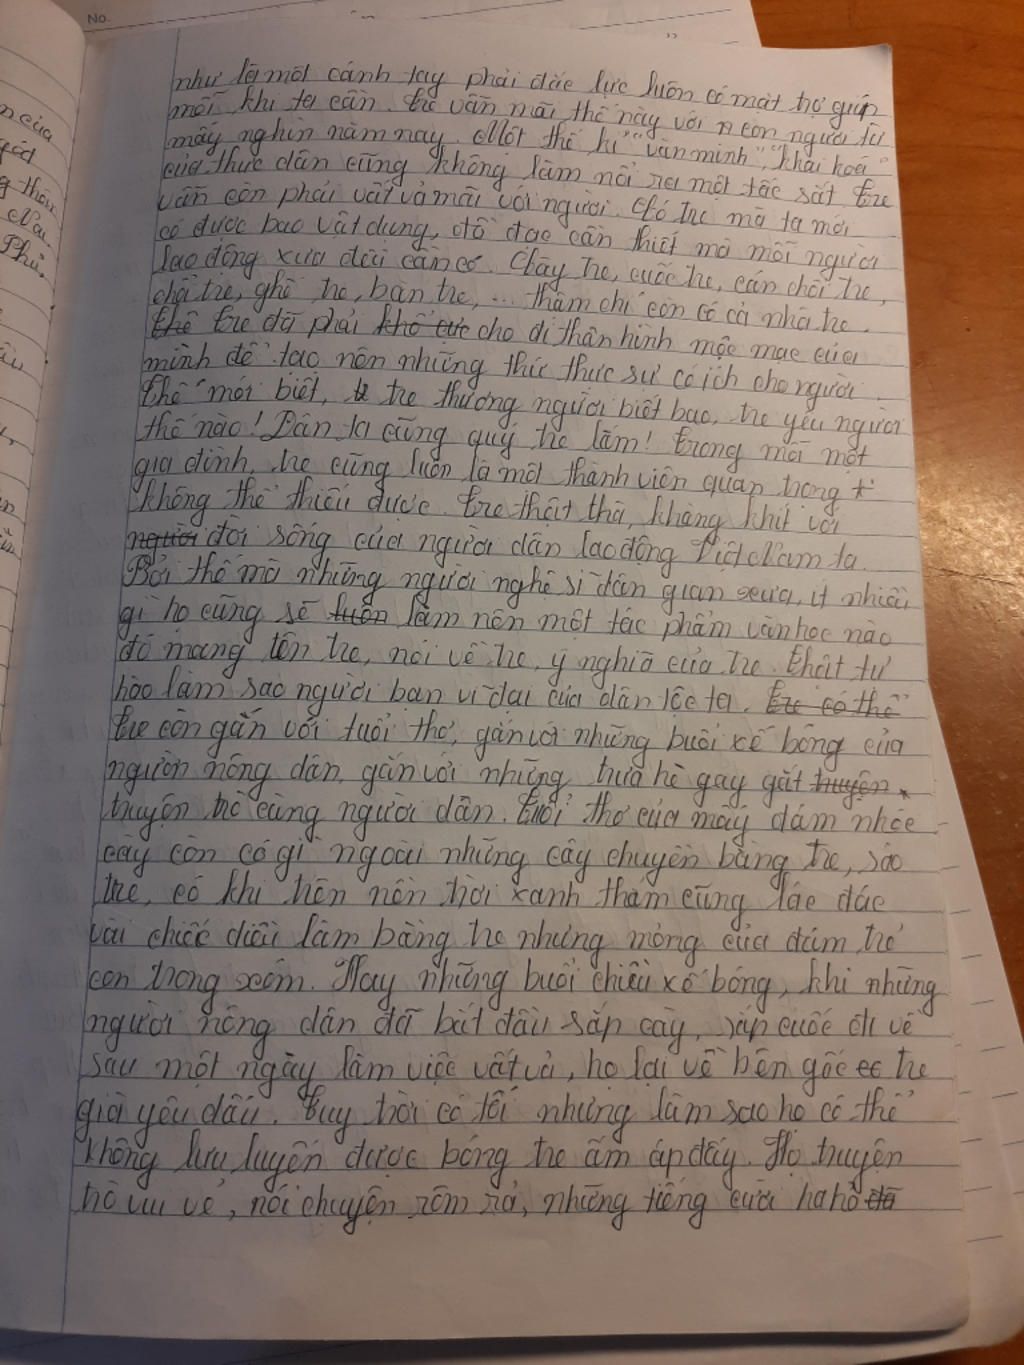 No.
như là một cánh tay phải đắc lực luôn có mặt trợ giúp
mỗi khi ta cần. Tre vẫn mãi thế này với con người từ
mấy nghìn năm nay. Một thế kỉ "văn minh", "khai hoá"
của thực dân cũng không làm nổi ra một tấc sắt. Tre
vẫn còn phải vất vả mãi với người. Có tre mà ta mới
có được bao vật dụng, đồ đạc cần thiết mà mỗi người
lao động xưa đều cần có. Chày tre, cuốc tre, cán chổi tre,
chõ tre, ghế tre, bàn tre, ... thậm chí còn có cả nhà tre.
Thế Tre đã phải khổ cực cho đi thân hình mộc mạc của
mình để tạo nên những thứ thực sự có ích cho người.
Thế mới biết, tre thương người biết bao, tre yêu người
thế nào! Dân ta cũng quý tre lắm! Trong mỗi một
gia đình, tre cũng luôn là một thành viên quan trọng
không thể thiếu được. Tre thật thà, khăng khít với
người đời sống của người dân lao động Việt Nam ta.
Bởi thế mà những người nghệ sĩ dân gian xưa, ít nhiều
gì họ cũng sẽ luôn làm nên một tác phẩm văn học nào
đó mang tên tre, nói về tre, ý nghĩa của tre. Thật tự
hào làm sao người bạn vĩ đại của dân tộc ta. Tre có thể
Tre còn gắn với tuổi thơ, gắn với những buổi xế bóng của
người nông dân, gắn với những trưa hè gay gắt truyện
truyện trò cùng người dân. Tuổi thơ của mấy đám nhóc
này còn có gì ngoài những cây chuyền bằng tre, sáo
tre, có khi trên nền trời xanh thẳm cũng lác đác
vài chiếc diều làm bằng tre nhưng mỏng của đám trẻ
con trong xóm. Hay những buổi chiều xế bóng, khi những
người nông dân đã bắt đầu sắp cày, sắp cuốc đi về
sau một ngày làm việc vất vả, họ lại về bên gốc tre
già yêu dấu. Tuy trời có tối nhưng làm sao họ có thể
không lưu luyến được bóng tre ấm áp đấy. Họ truyện
trò vui vẻ, nói chuyện rôm rả, những tiếng cười ha hô đã